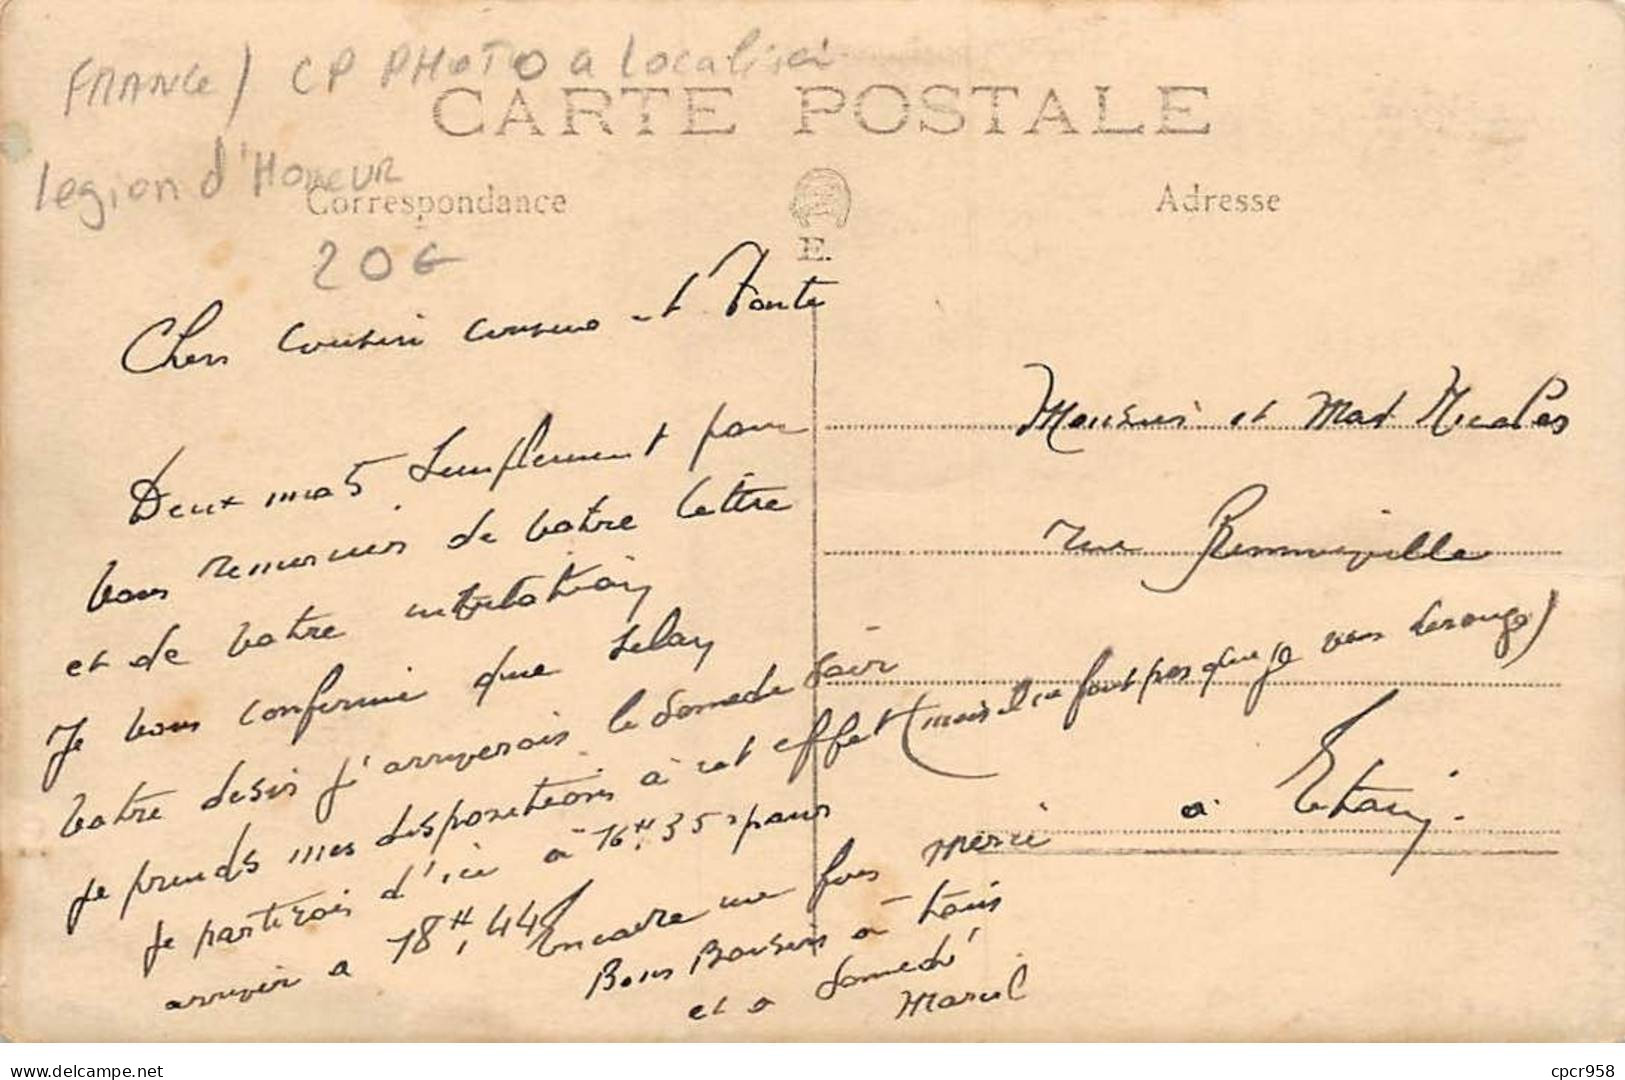 FRANCE) CP PHOTO a Localiser
CARTE POSTALE
legion d'Honeur
Correspondance
Adresse
20€
E.
Chers Cousin cousine et Tante
Deux mots Simplement pour
Vous remercier de votre lettre
et de votre invitation
Je vous confirme que selon
Votre desir j'arriverais le Samedi soir
Je prends mes dispositions à cet effet (mais il ne faut pas que je vous derange)
Je partirais d'ici à 16H,35 pour
arriver a 18H,44
Encore une fois merci
Bons Baisers a tous
et a Samedi
Marcel
Monsieur et Mad Nicolas
rue
a Etain.
delcampe.net
cpcr958